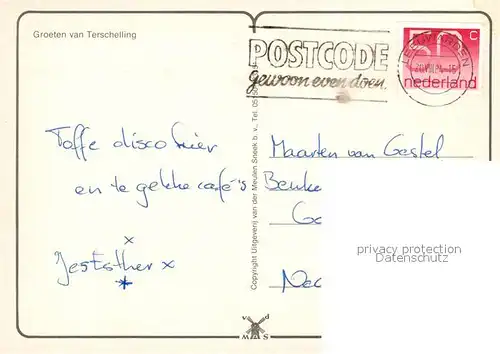 Groeten van Terschelling
POSTCODE
gewoon even doen.
LEEUWARDEN
50 c
nederland
Toffe disco hier
en te gekke café's
x
x
Maarten van Gestel
Ne
Copyright Uitgeverij van der Meulen Sneek b.v., Tel.
privacy protection
Datenschutz